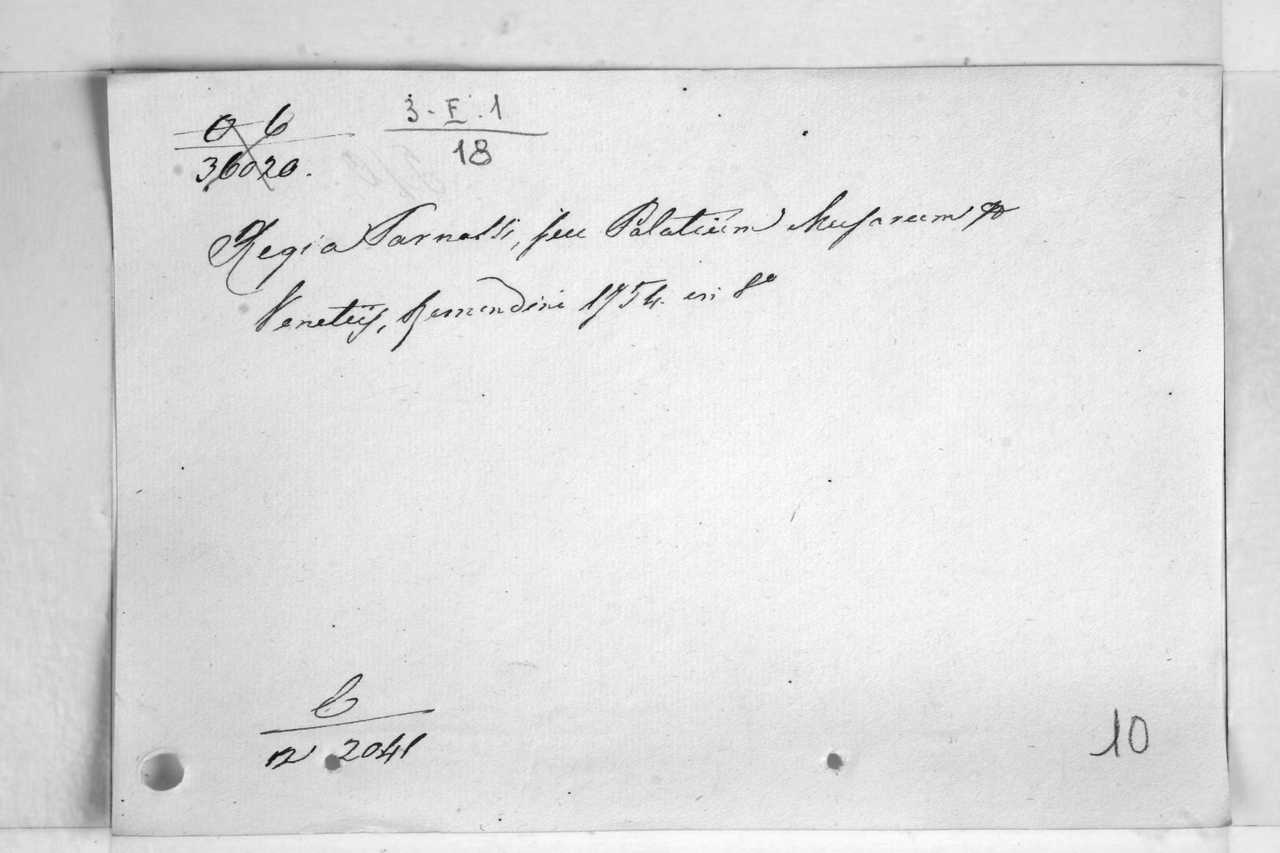 O b 3-E.1
36020. 18
Regia Parnassi, seu Palatium Musarum &
Venetiis, Remondini 1754. in 8°
b
n 2041
10